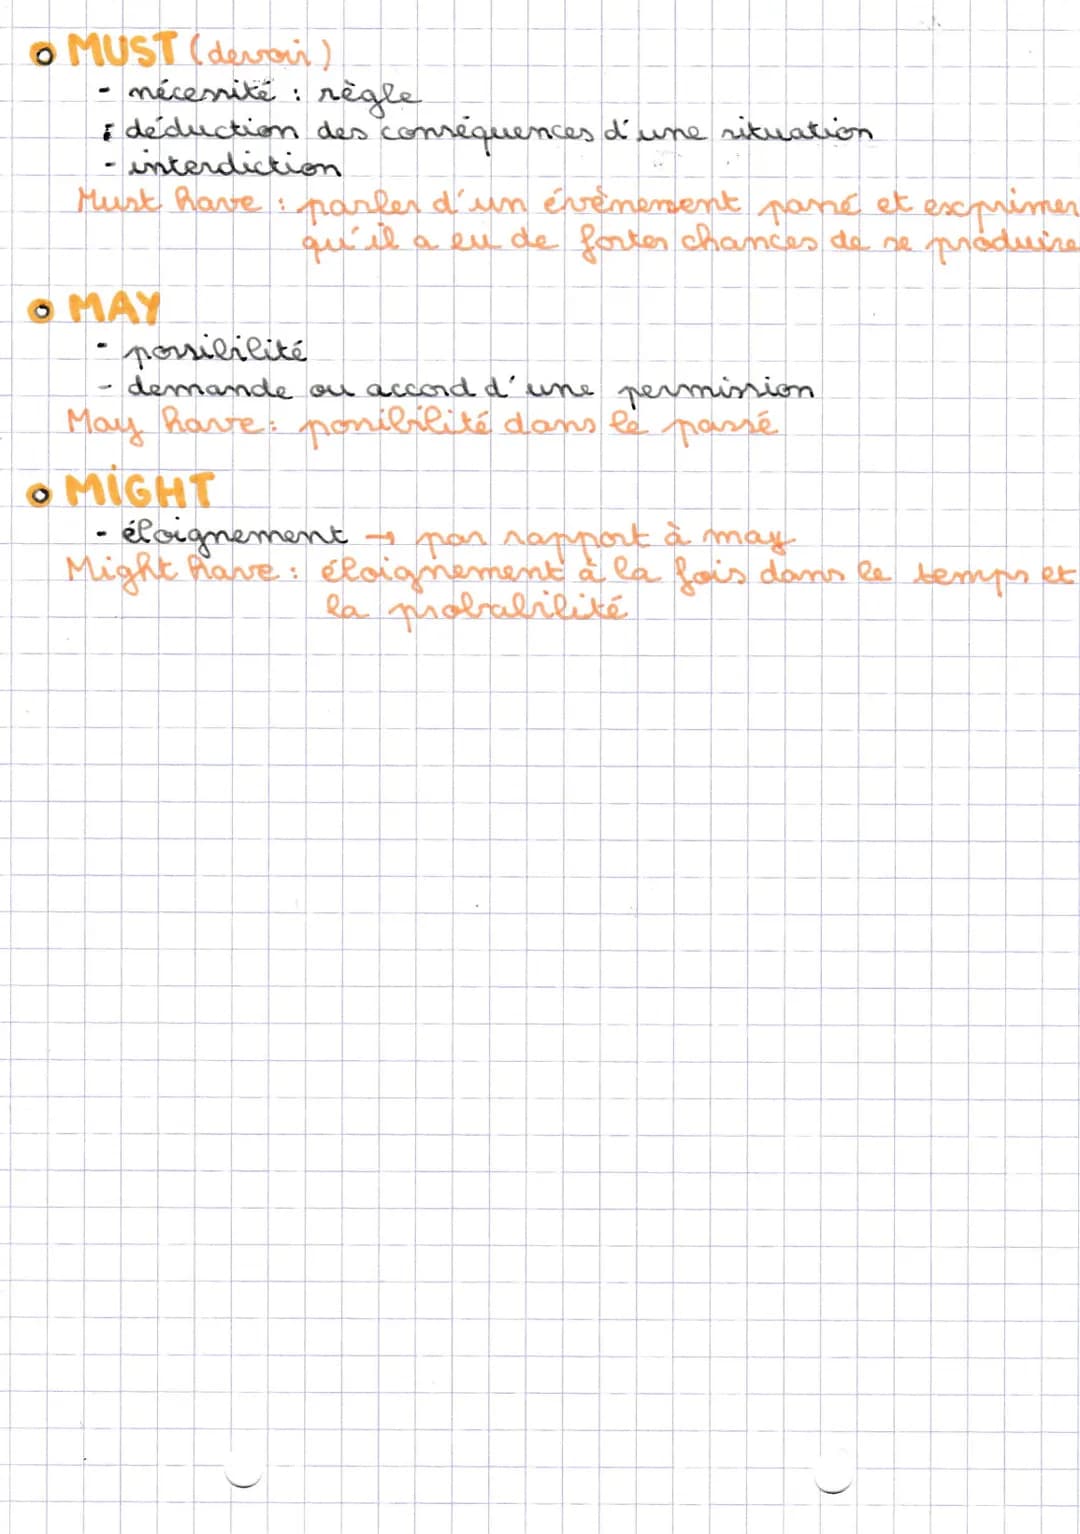 MUST (devoir)
- nécessité : règle
- déduction des conséquences d'une situation
- interdiction
Must have : parler d'un évènement passé et exprimer
qu'il a eu de fortes chances de se produire
MAY
- possibilité
- demande ou accord d'une permission
May have : possibilité dans le passé
MIGHT
- éloignement → par rapport à may
Might have : éloignement à la fois dans le temps et
la probabilité